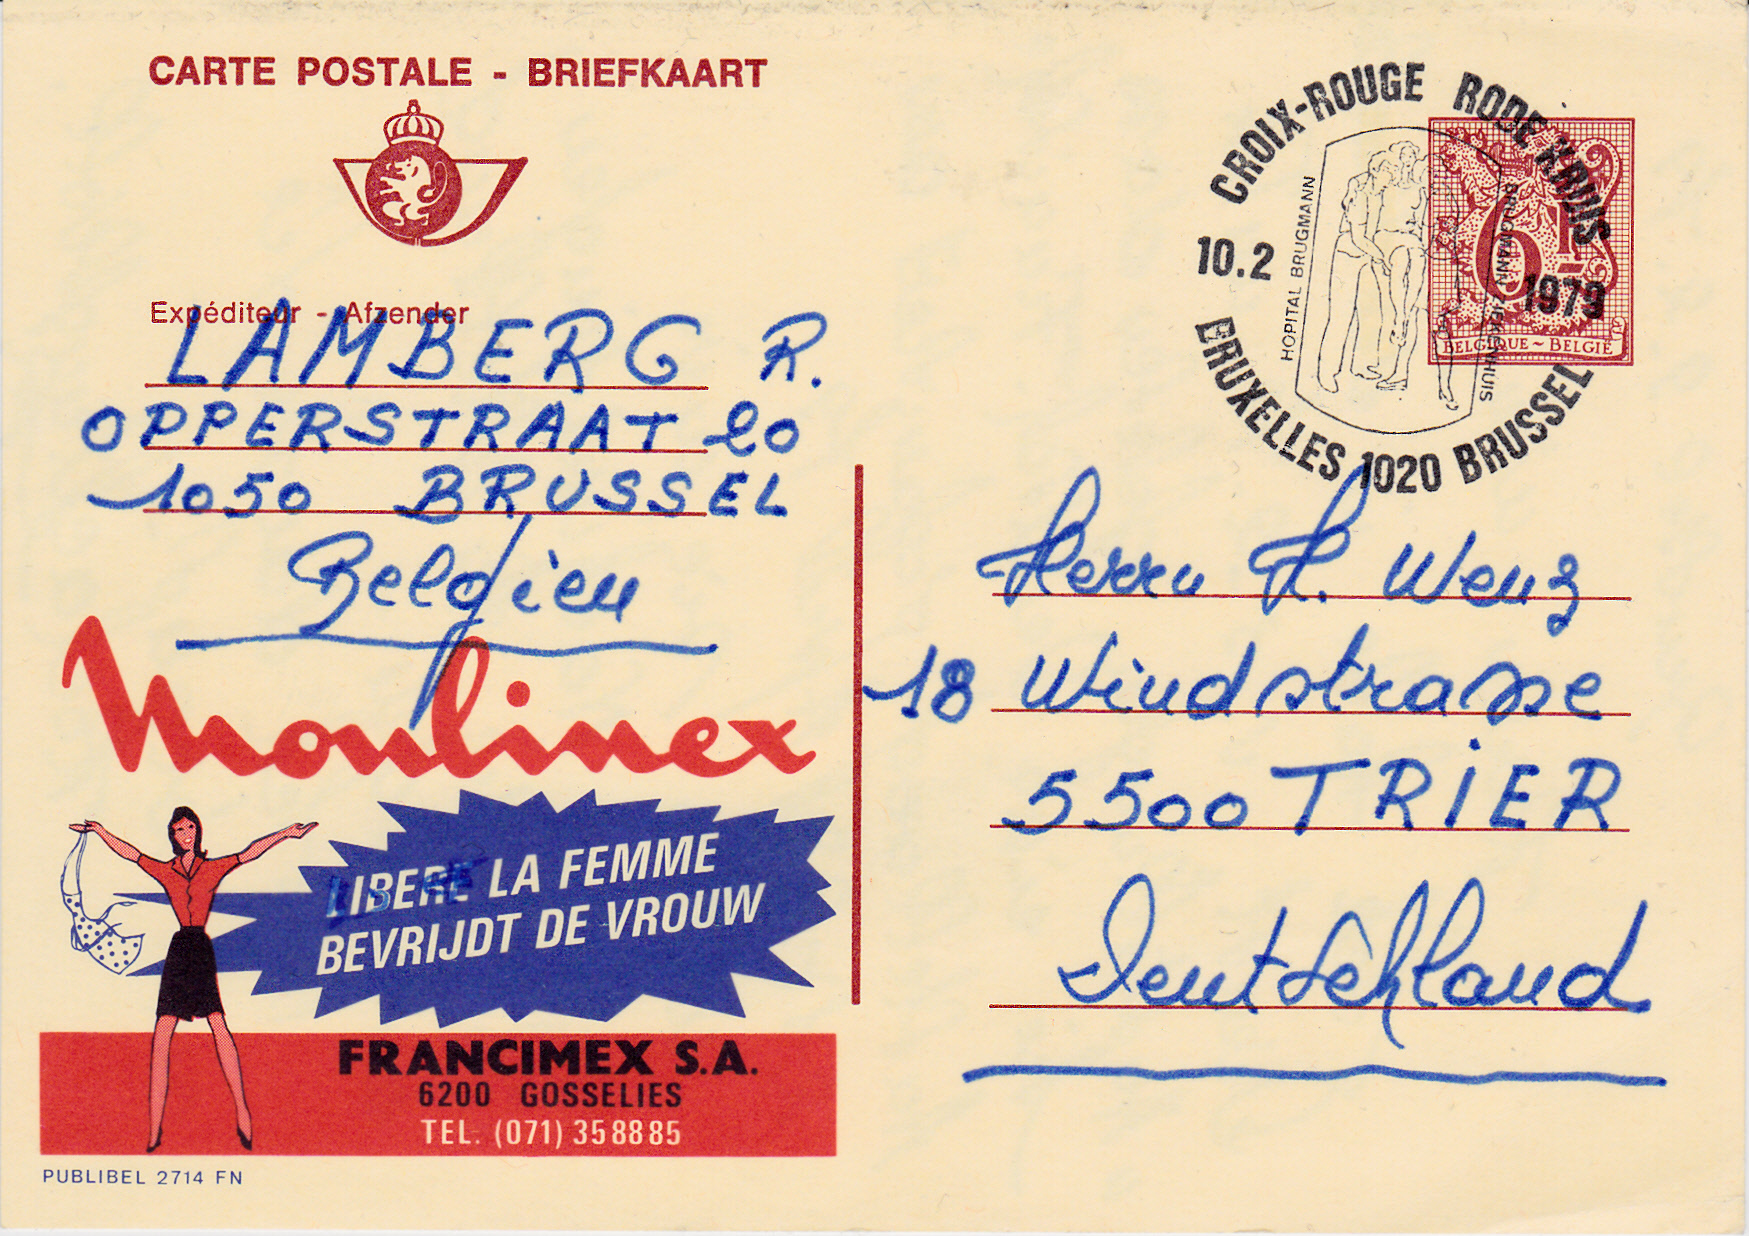 CARTE POSTALE - BRIEFKAART
CROIX-ROUGE RODE KRUIS
10.2 1979
HOPITAL BRUGMANN
BRUGMANN ZIEKENHUIS
BRUXELLES 1020 BRUSSEL
6F
BELGIQUE ~ BELGIË
Expéditeur - Afzender
LAMBERG R.
OPPERSTRAAT 20
1050 BRUSSEL
Belgien
Moulinex
LIBERE LA FEMME
BEVRIJDT DE VROUW
FRANCIMEX S.A.
6200 GOSSELIES
TEL. (071) 358885
PUBLIBEL 2714 FN
Herrn H. Wenz
18 Windstrasse
5500 TRIER
Deutschland